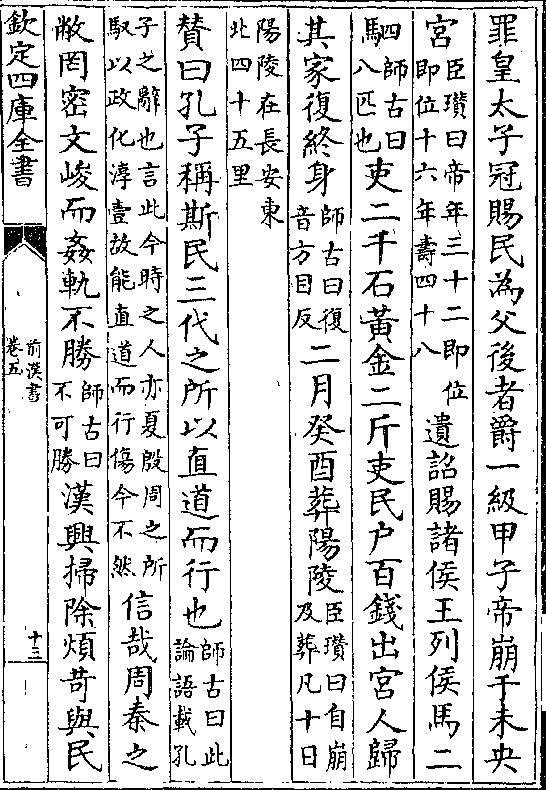 罪皇太子冠賜民為父後者爵一級甲子帝崩于未央
宮臣瓚曰帝年三十二即位即位十六年壽四十八遺詔賜諸侯王列侯馬二
駟師古曰八匹也吏二千石黃金二斤吏民户百錢出宮人歸
其家復終身師古曰復音方目反二月癸酉葬陽陵臣瓚曰自崩及葬凡十日
陽陵在長安東北四十五里
贊曰孔子稱斯民三代之所以直道而行也師古曰此論語載孔
子之辭也言此今時之人亦夏殷周之所馭以政化淳壹故能直道而行傷今不然信哉周秦之
敝罔密文峻而姦軌不勝師古曰不可勝漢興掃除煩苛與民
欽定四庫全書
前漢書
卷五
十三